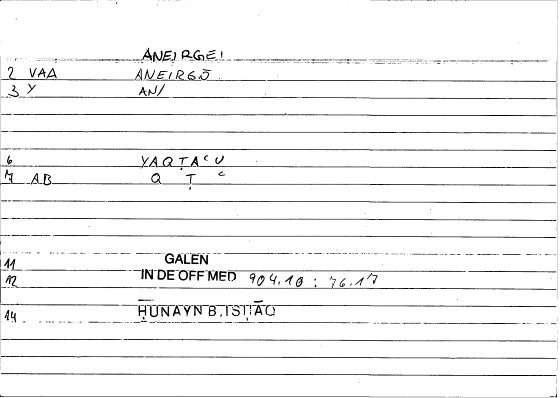 ANEIRGEI
2 VAΔ ANEIRGŌ
3 Y AN/
6 YAQṬAʿU
7 AB Q Ṭ ʿ
11 GALEN
12 IN DE OFF MED 904.10 : 76.17
14 ḤUNAYN B. ISḤĀQ